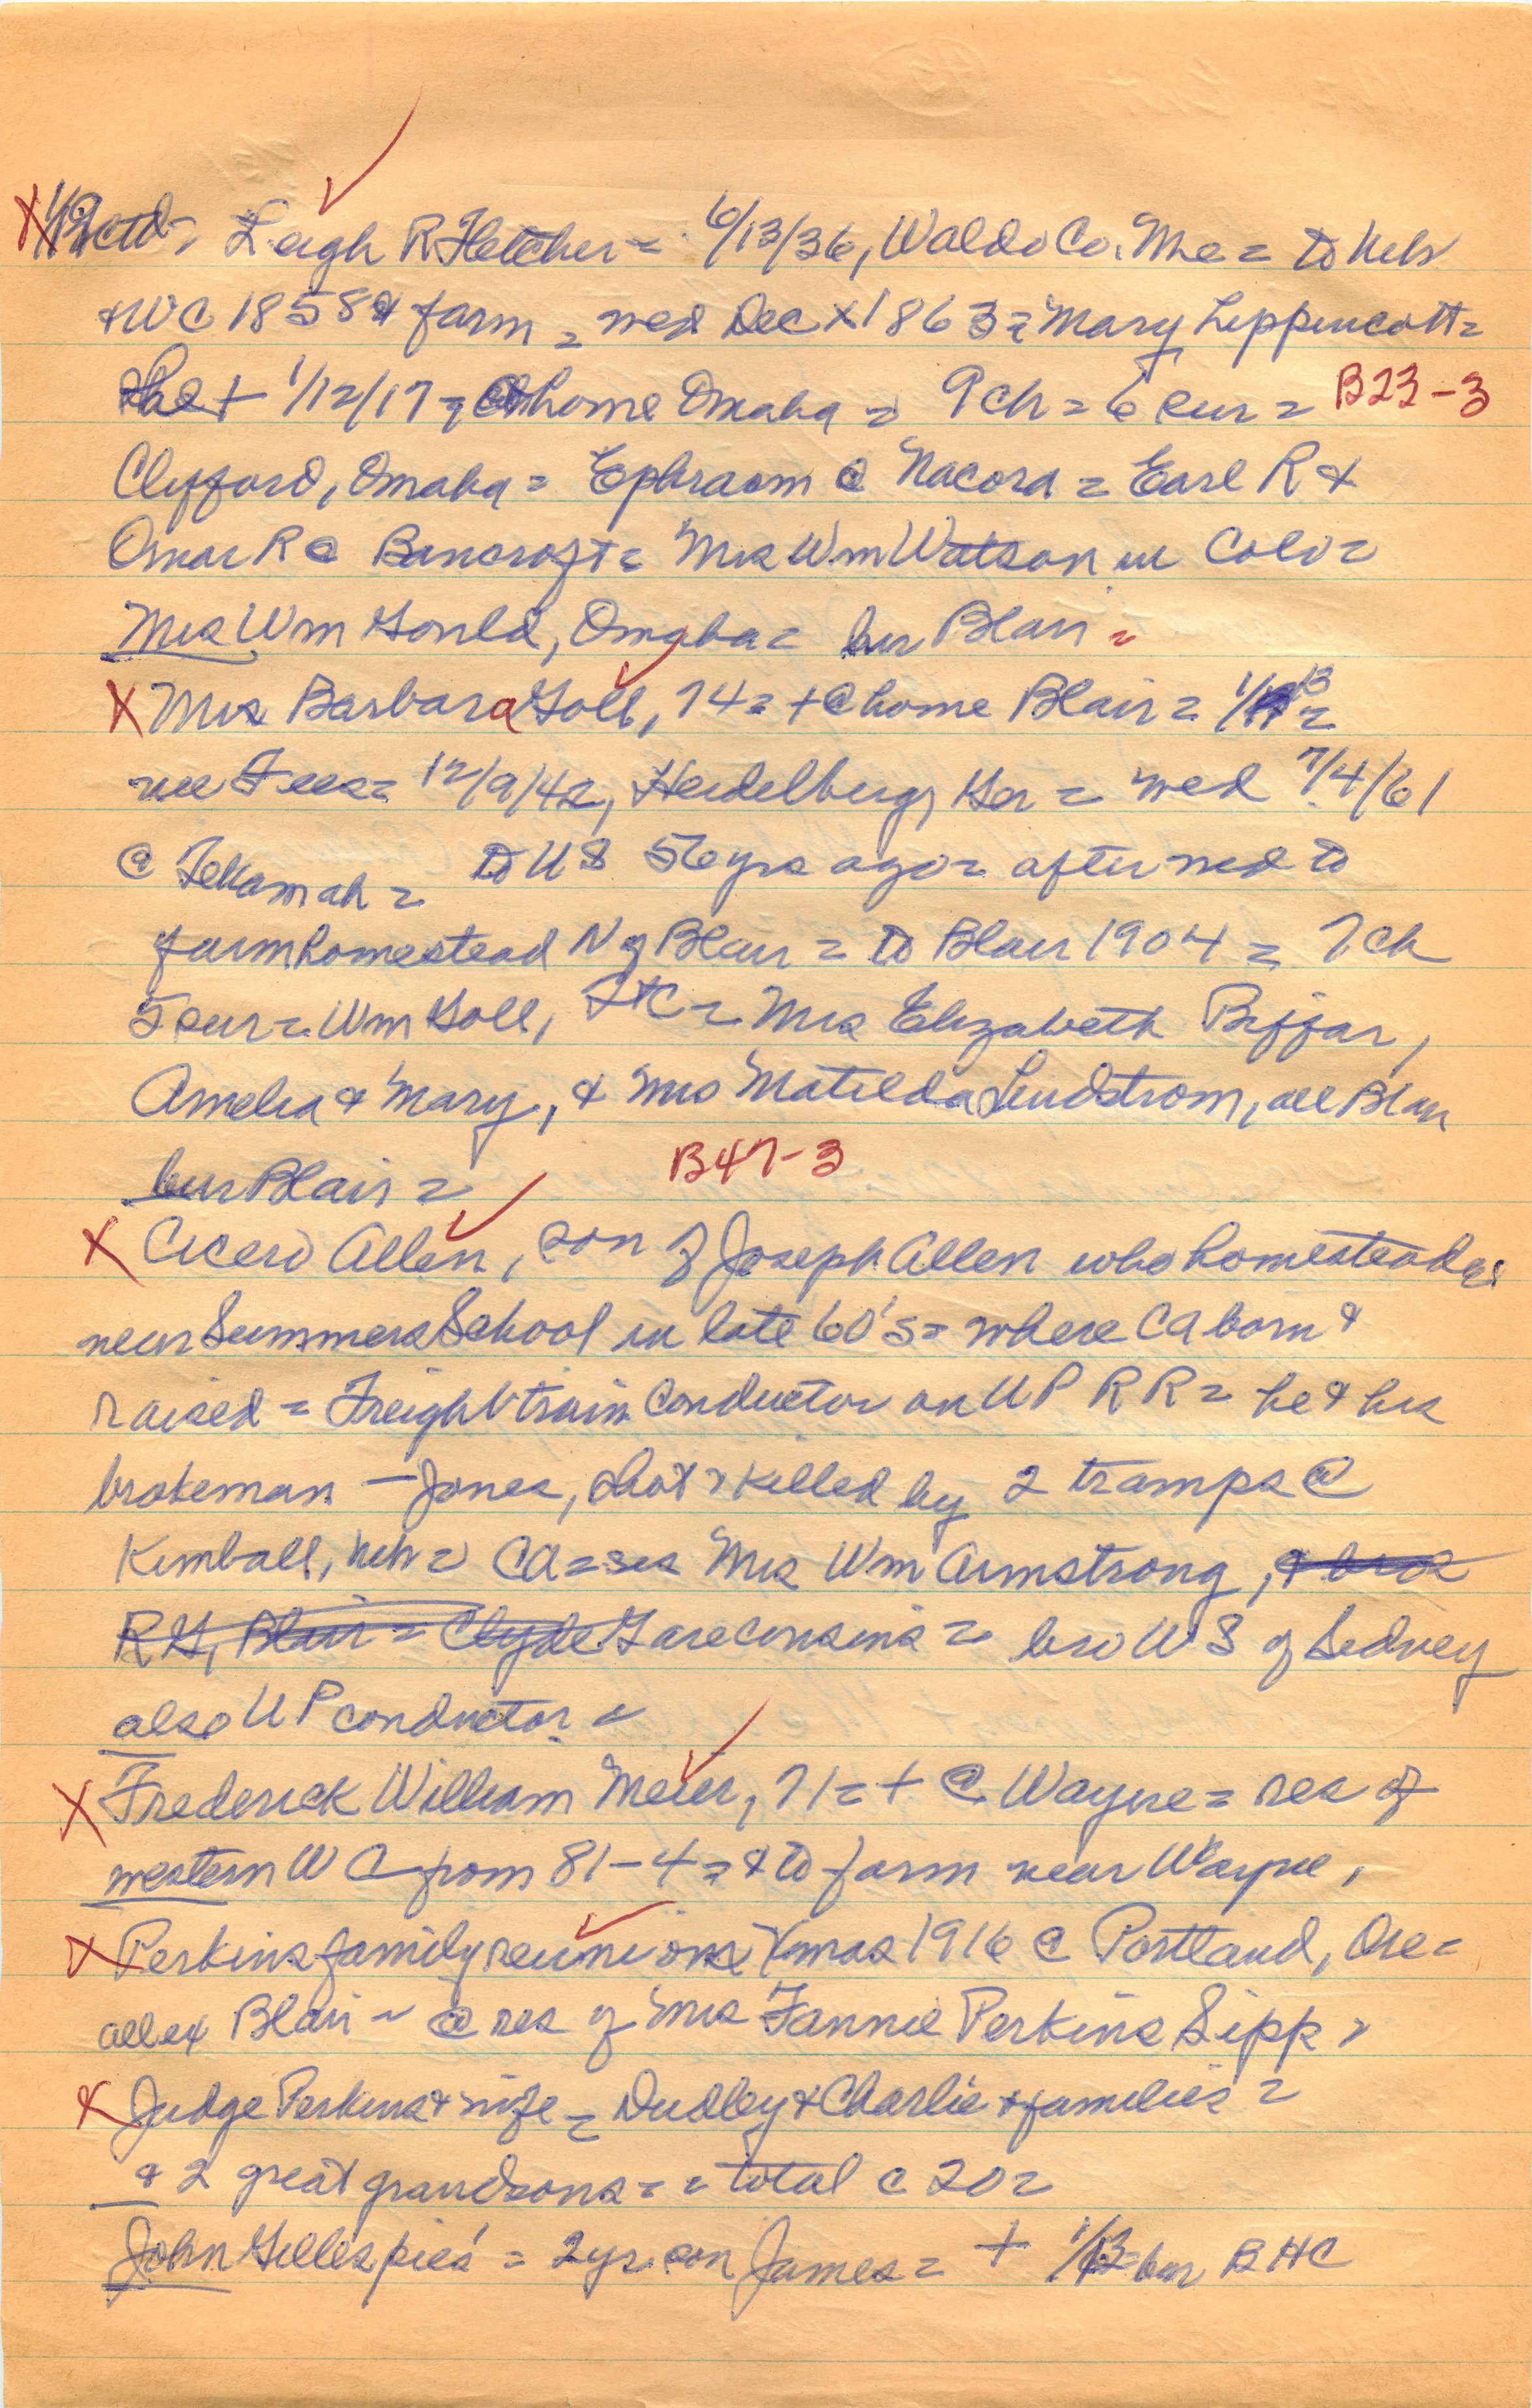 X 1/19 ctd = Leigh R Fletcher = 6/13/36, Waldo Co. Me = to Neb
& WC 1858 & farm = wed Dec X 1863 = Mary Lippencott =
he + 1/12/17 = @ home Omaha = 9 ch = 6 sur = B23-3
Clifford, Omaha = Ephraom @ Nacora = Earl R &
Omar R @ Bancroft = Mrs Wm Watson in Colo =
Mrs Wm Gould, Omaha = bur Blair =
X Mrs Barbara Goll, 74 = + @ home Blair = 1/13 =
nee Fees = 12/9/42, Heidelberg, Ger = wed 7/4/61
@ Tekamah = to US 56 yrs ago = after wed to
farm homestead N of Blair = to Blair 1904 = 7 ch
5 sur = Wm Goll, = Mrs Elizabeth Biffar,
Amelia & Mary, & Mrs Matilda Lindstrom, all Blair
bur Blair = B47-3
X Cicero Allen, son of Joseph Allen who homesteaded
near Summers School in late 60's = where CA born &
raised = Freight train conductor on UP RR = he & his
brakeman — Jones, shot & killed by 2 tramps @
Kimball, Neb = CA = sis Mrs Wm Armstrong, & bros
RG, Blair = Clyde G are cousins = bro WS of Sidney
also UP conductor =
X Frederick William Meier, 71 = + @ Wayne = res of
western WC from 81-4 = & to farm near Wayne,
X Perkins family reunion Xmas 1916 @ Portland, Ore =
all ex Blair = @ res of Mrs Fannie Perkins Sipp,
X Judge Perkins & wife = Dudley & Charlie & families =
& 2 great grandsons = = total c 20 =
John Gillespies' = 2 yr son James = + 1/13 = bur BHC